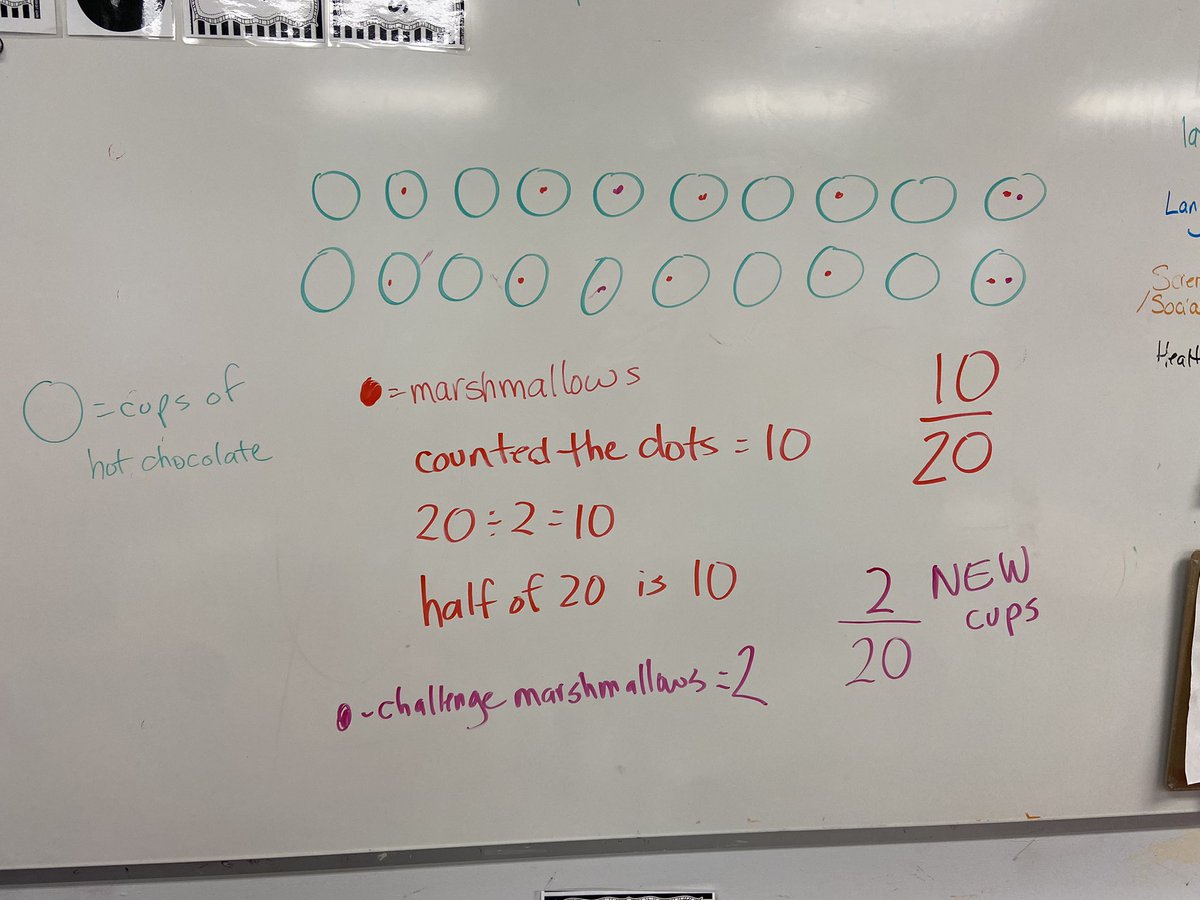 = cups of
hot chocolate
= marshmallows
counted the dots = 10
20 ÷ 2 = 10
half of 20 is 10
- challenge marshmallows = 2
10
20
2 NEW
cups
20
Lan
/Socia
Healt